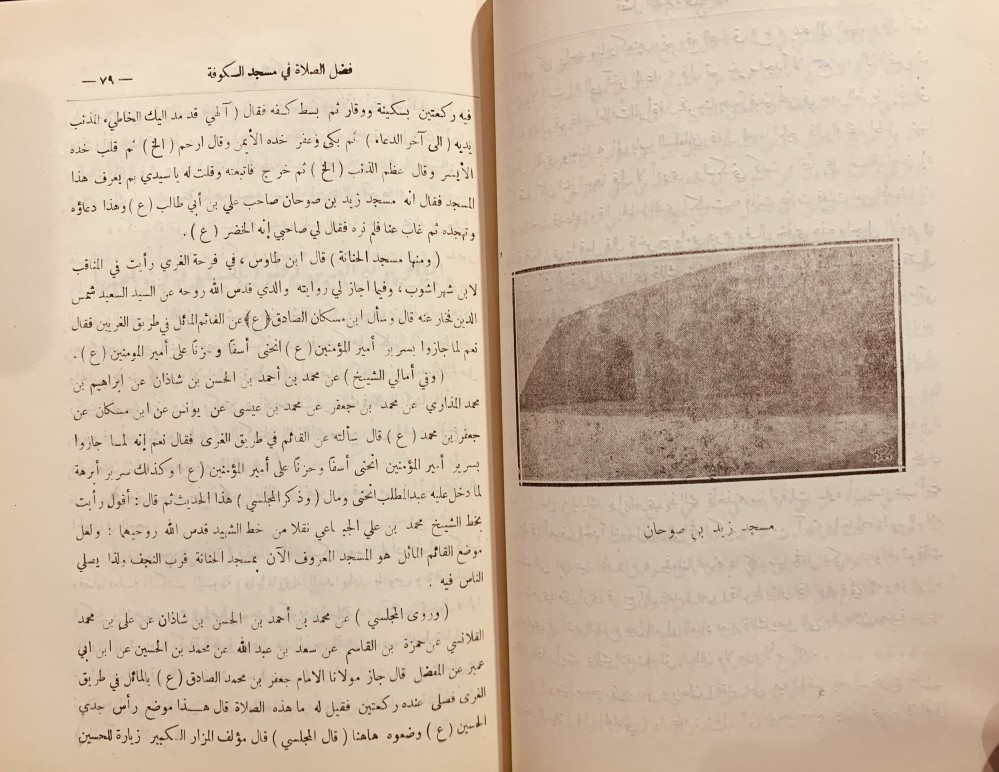 فضل الصلاة في مسجد الكوفة — ٧٩ —
فيه ركعتين بسكينة ووقار ثم بسط كفه فقال ( آلهي قد مد اليك الخاطيء المذنب
يديه ( الى آخر الدعاء ) ثم بكى وعفر خده الأيمن وقال ارحم ( الخ ) ثم قلب خده
الأيسر وقال عظم الذنب ( الخ ) ثم خرج فاتبعته وقلت له يا سيدي بم يعرف هذا
المسجد فقال انه مسجد زيد بن صوحان صاحب علي بن أبي طالب ( ع ) وهذا دعاؤه
وتهجده ثم غاب عنا فلم نره فقال لي صاحبي إنه الخضر ( ع ) .
( ومنها مسجد الحنانة ) قال ابن طاوس ، في فرحة الغري رأيت في المناقب
لابن شهر اشوب ، وفيما اجاز لي روايته والدي قدس الله روحه عن السيد السعيد شمس
الدين فخار عنه قال وسأل ابن مسكان الصادق ( ع ) عن القائم المائل في طريق الغريين فقال
نعم لما جازوا بسرير أمير المؤمنين ( ع ) انحنى أسفًا وحزنًا على أمير المومنين ( ع ) .
( وفي أمالي الشيخ ) عن محمد بن أحمد بن الحسن بن شاذان عن ابراهيم بن
محمد المذاري عن محمد بن جعفر عن محمد بن عيسى عن يونس عن ابن مسكان عن
جعفر بن محمد ( ع ) قال سألته عن القائم في طريق الغرى فقال نعم إنه لما جازوا
بسرير أمير المؤمنين انحنى أسفًا وحزنًا على أمير المؤمنين ( ع ) وكذلك سرير أبرهة
لما دخل عليه عبد المطلب انحنى ومال ( وذكر المجلسي ) هذا الحديث ثم قال : أقول رأيت
بخط الشيخ محمد بن علي الجباعي نقلا من خط الشهيد قدس الله روحيهما : ولعل
موضع القائم المائل هو المسجد المعروف الآن بمسجد الحنانة قرب النجف ولذا يصلي
الناس فيه .
( وروى المجلسي ) عن محمد بن أحمد بن الحسن بن شاذان عن علي بن محمد
القلانسي عن حمزة بن القاسم عن سعد بن عبد الله عن محمد بن الحسين عن ابن ابي
عمير عن المفضل قال جاز مولانا الامام جعفر بن محمد الصادق ( ع ) بالمائل في طريق
الغرى فصلى عنده ركعتين فقيل له ما هذه الصلاة قال هـذا موضع رأس جدي
الحسين ( ع ) وضعوه هاهنا ( قال المجلسي ) قال مؤلف المزار الكبير زيارة للحسين
مسجد زيد بن صوحان